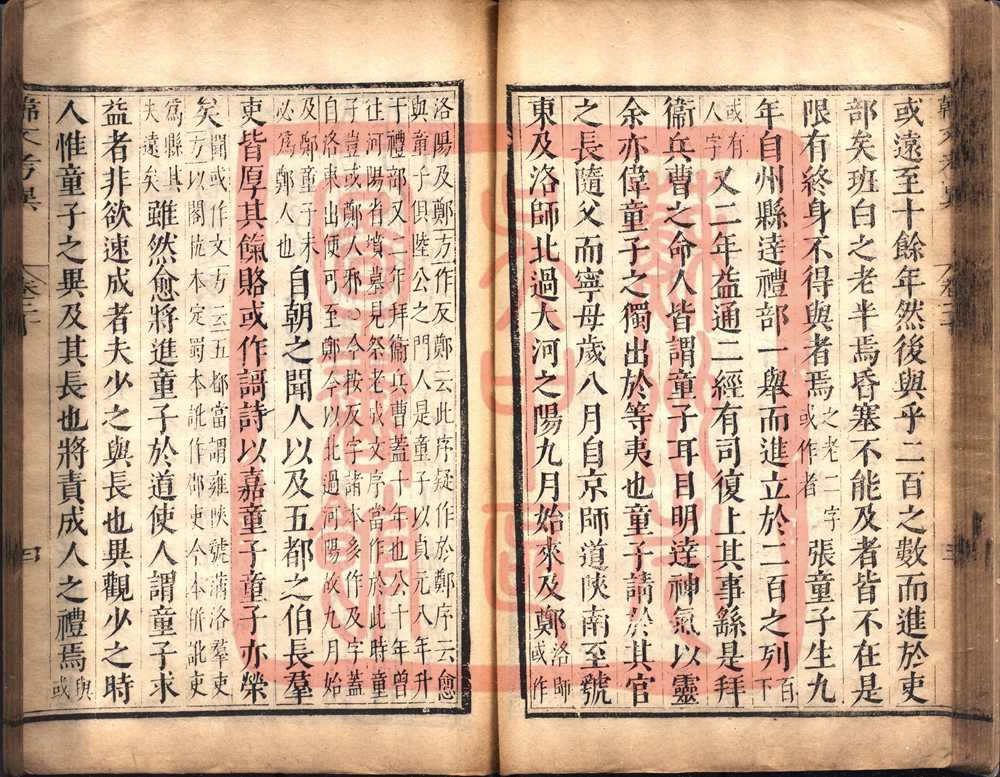 或遠至十餘年然後與乎二百之數而進於吏
部矣班白之老半焉昏塞不能及者皆不在是
限有終身不得與者焉之老二字或作者張童子生九
年自州縣達禮部一舉而進立於二百之列百下
或有人字又二年益通二經有司復上其事繇是拜
衞兵曹之命人皆謂童子耳目明達神氣以靈
余亦偉童子之獨出於等夷也童子請於其官
之長隨父而寧母歲八月自京師道陝南至虢
東及洛師北過大河之陽九月始來及鄭洛師或作
洛陽及鄭方作反鄭云此序疑作於鄭序云愈
與童子俱陸公之門人是童子以貞元八年升
于禮部又二年拜衞兵曹蓋十年也公十年曾
往河陽省墳墓見祭老成文序當作於此時童
子豈或鄭人邪○今按反字諸本多作及字蓋
自洛東出便可至鄭今以北過河陽故九月始
及鄭童子未必爲鄭人也自朝之聞人以及五都之伯長羣
吏皆厚其餼賂或作謌詩以嘉童子童子亦榮
矣聞或作文方云五都當謂雍陝虢蒲洛羣吏
方以閣杭本定蜀本訛作都吏今本併訛吏
爲縣其失遠矣雖然愈將進童子於道使人謂童子求
益者非欲速成者夫少之與長也異觀少之時
人惟童子之異及其長也將責成人之禮焉與或
韓文考異
卷二十
四